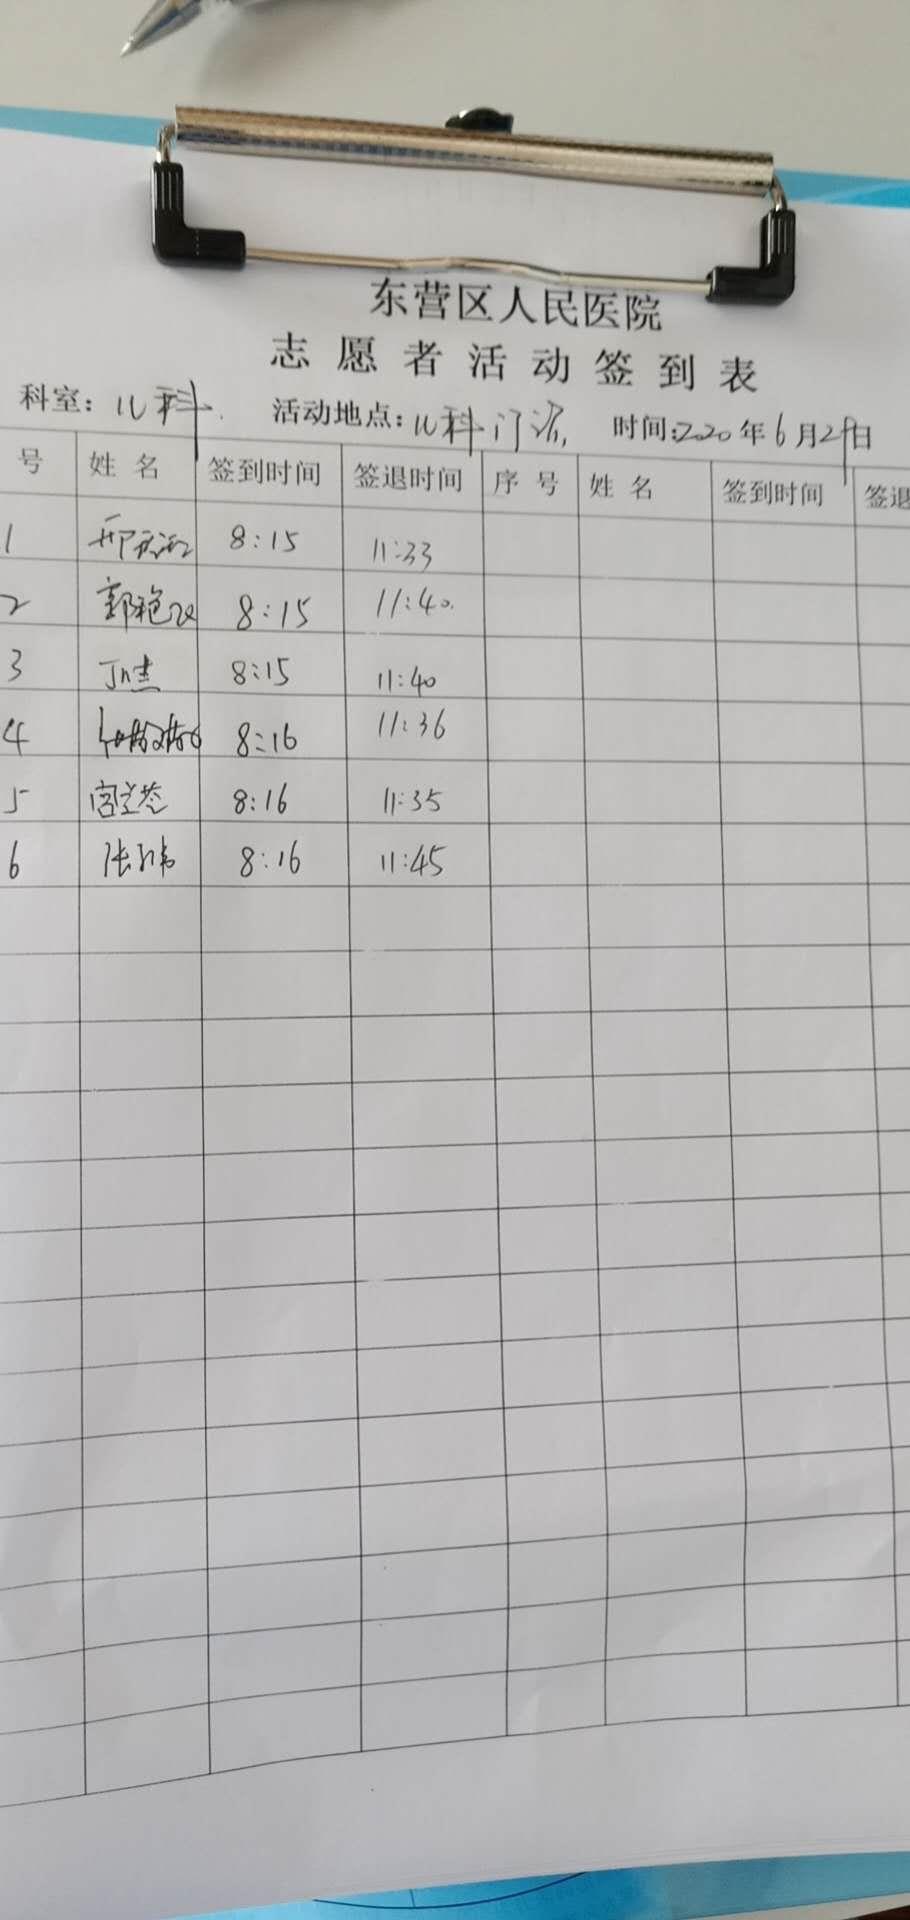 东营区人民医院
志愿者活动签到表
科室：儿科 活动地点：儿科门诊 时间：2020年6月29日
号 姓名 签到时间 签退时间 序号 姓名 签到时间 签退
1 8:15 11:33
2 郭艳 8:15 11:40
3 8:15 11:40
4 8:16 11:36
5 8:16 11:35
6 张玮 8:16 11:45